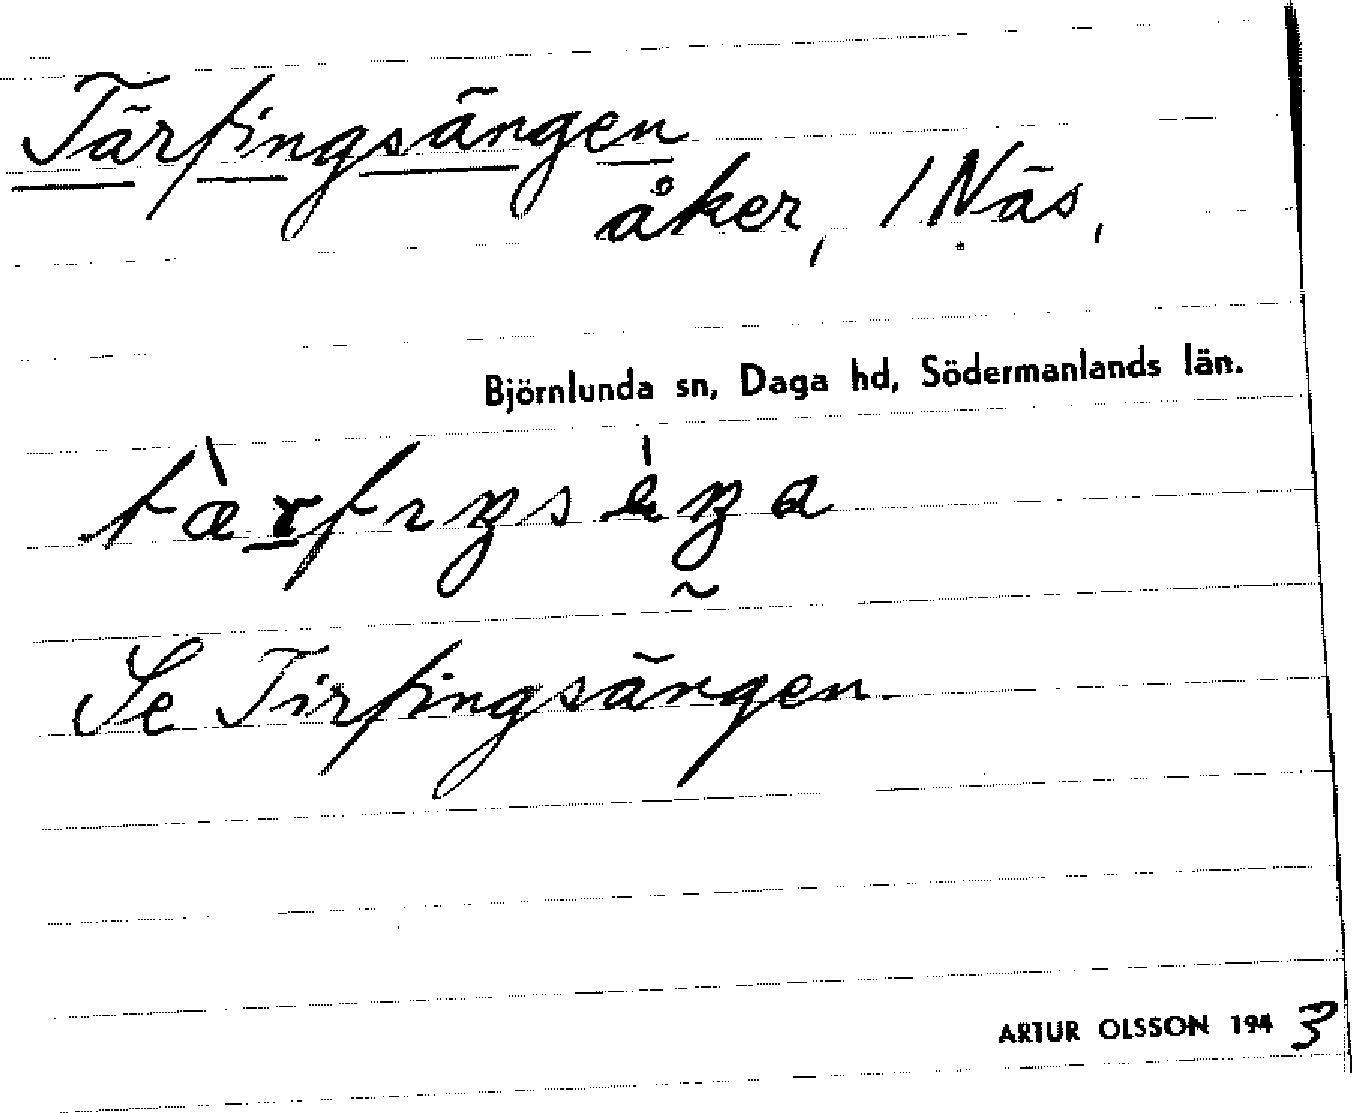 Tärfingsängen
åker, / Näs,
Björnlunda sn, Daga hd, Södermanlands län.
Se Tirfingsängen
ARTUR OLSSON 1943